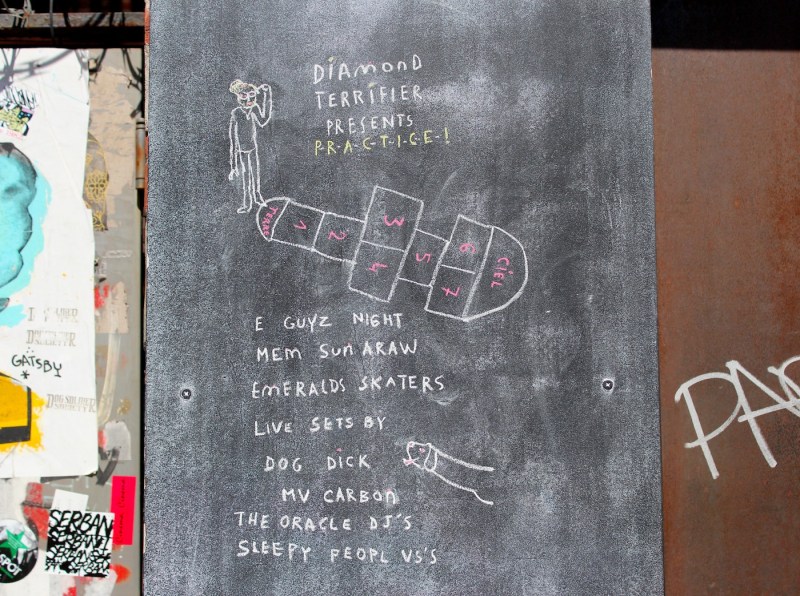 DiAMOnD
TERRiFiER
PRESENTS
P-R-A-C-T-I-C-E-!
TERRE
1
2
3
4
5
6
7
CiEL
E GUYZ NIGHT
MEM SUN ARAW
EMERALDS SKATERS
LIVE SETS BY
DOG DICK
MV CARBON
THE ORACLE DJ'S
SLEEPY PEOPL VS'S
GATSBY
DOG SOLDIER
SERBAN
SPOT
PAR